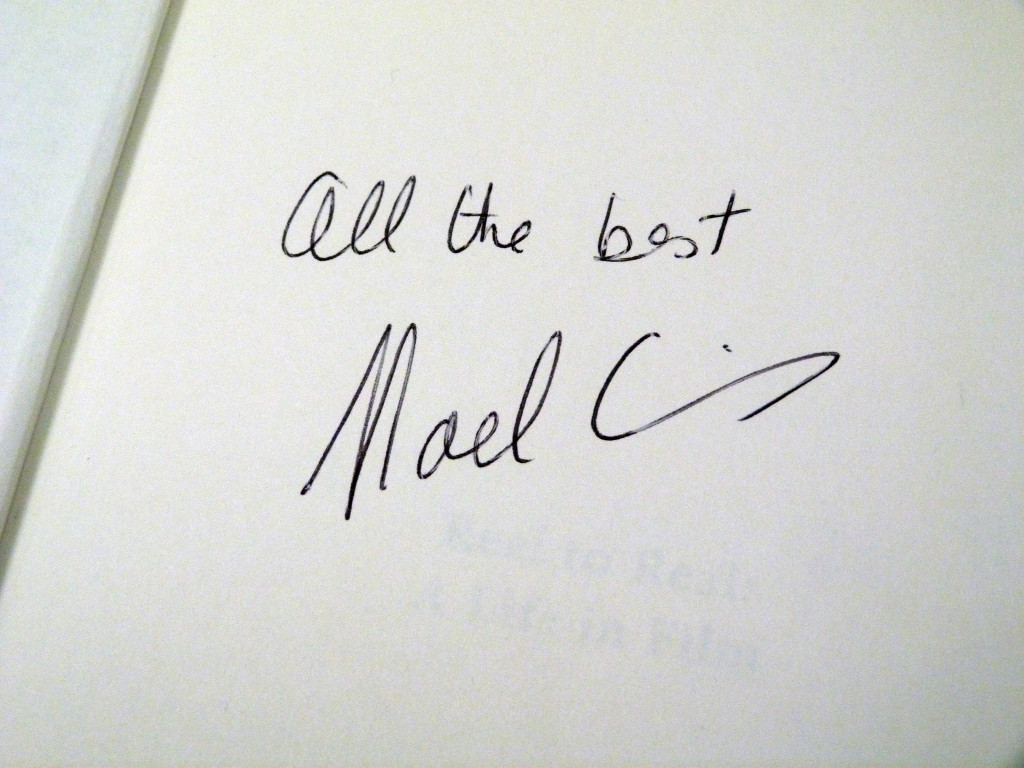 All the best
Noel
Reel to Real:
A Life in Film